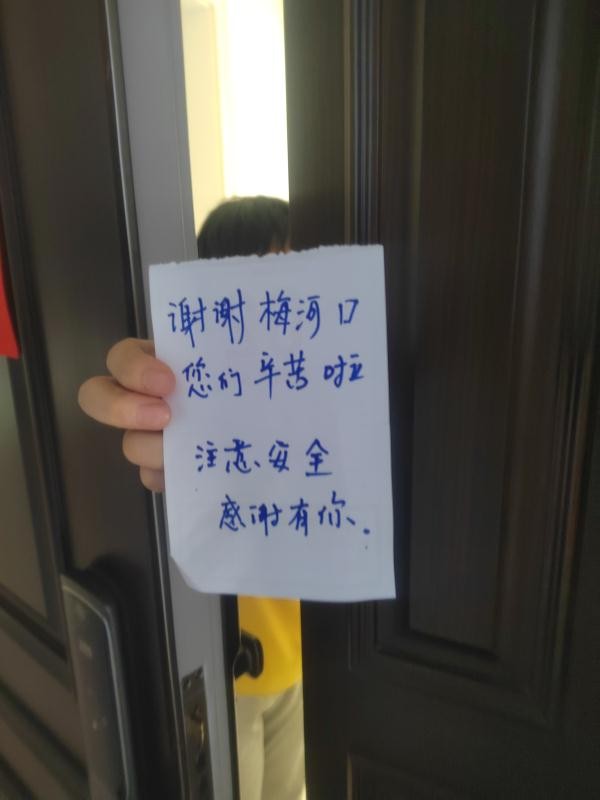 谢谢梅河口
您们辛苦啦
注意、安全
感谢有你、.